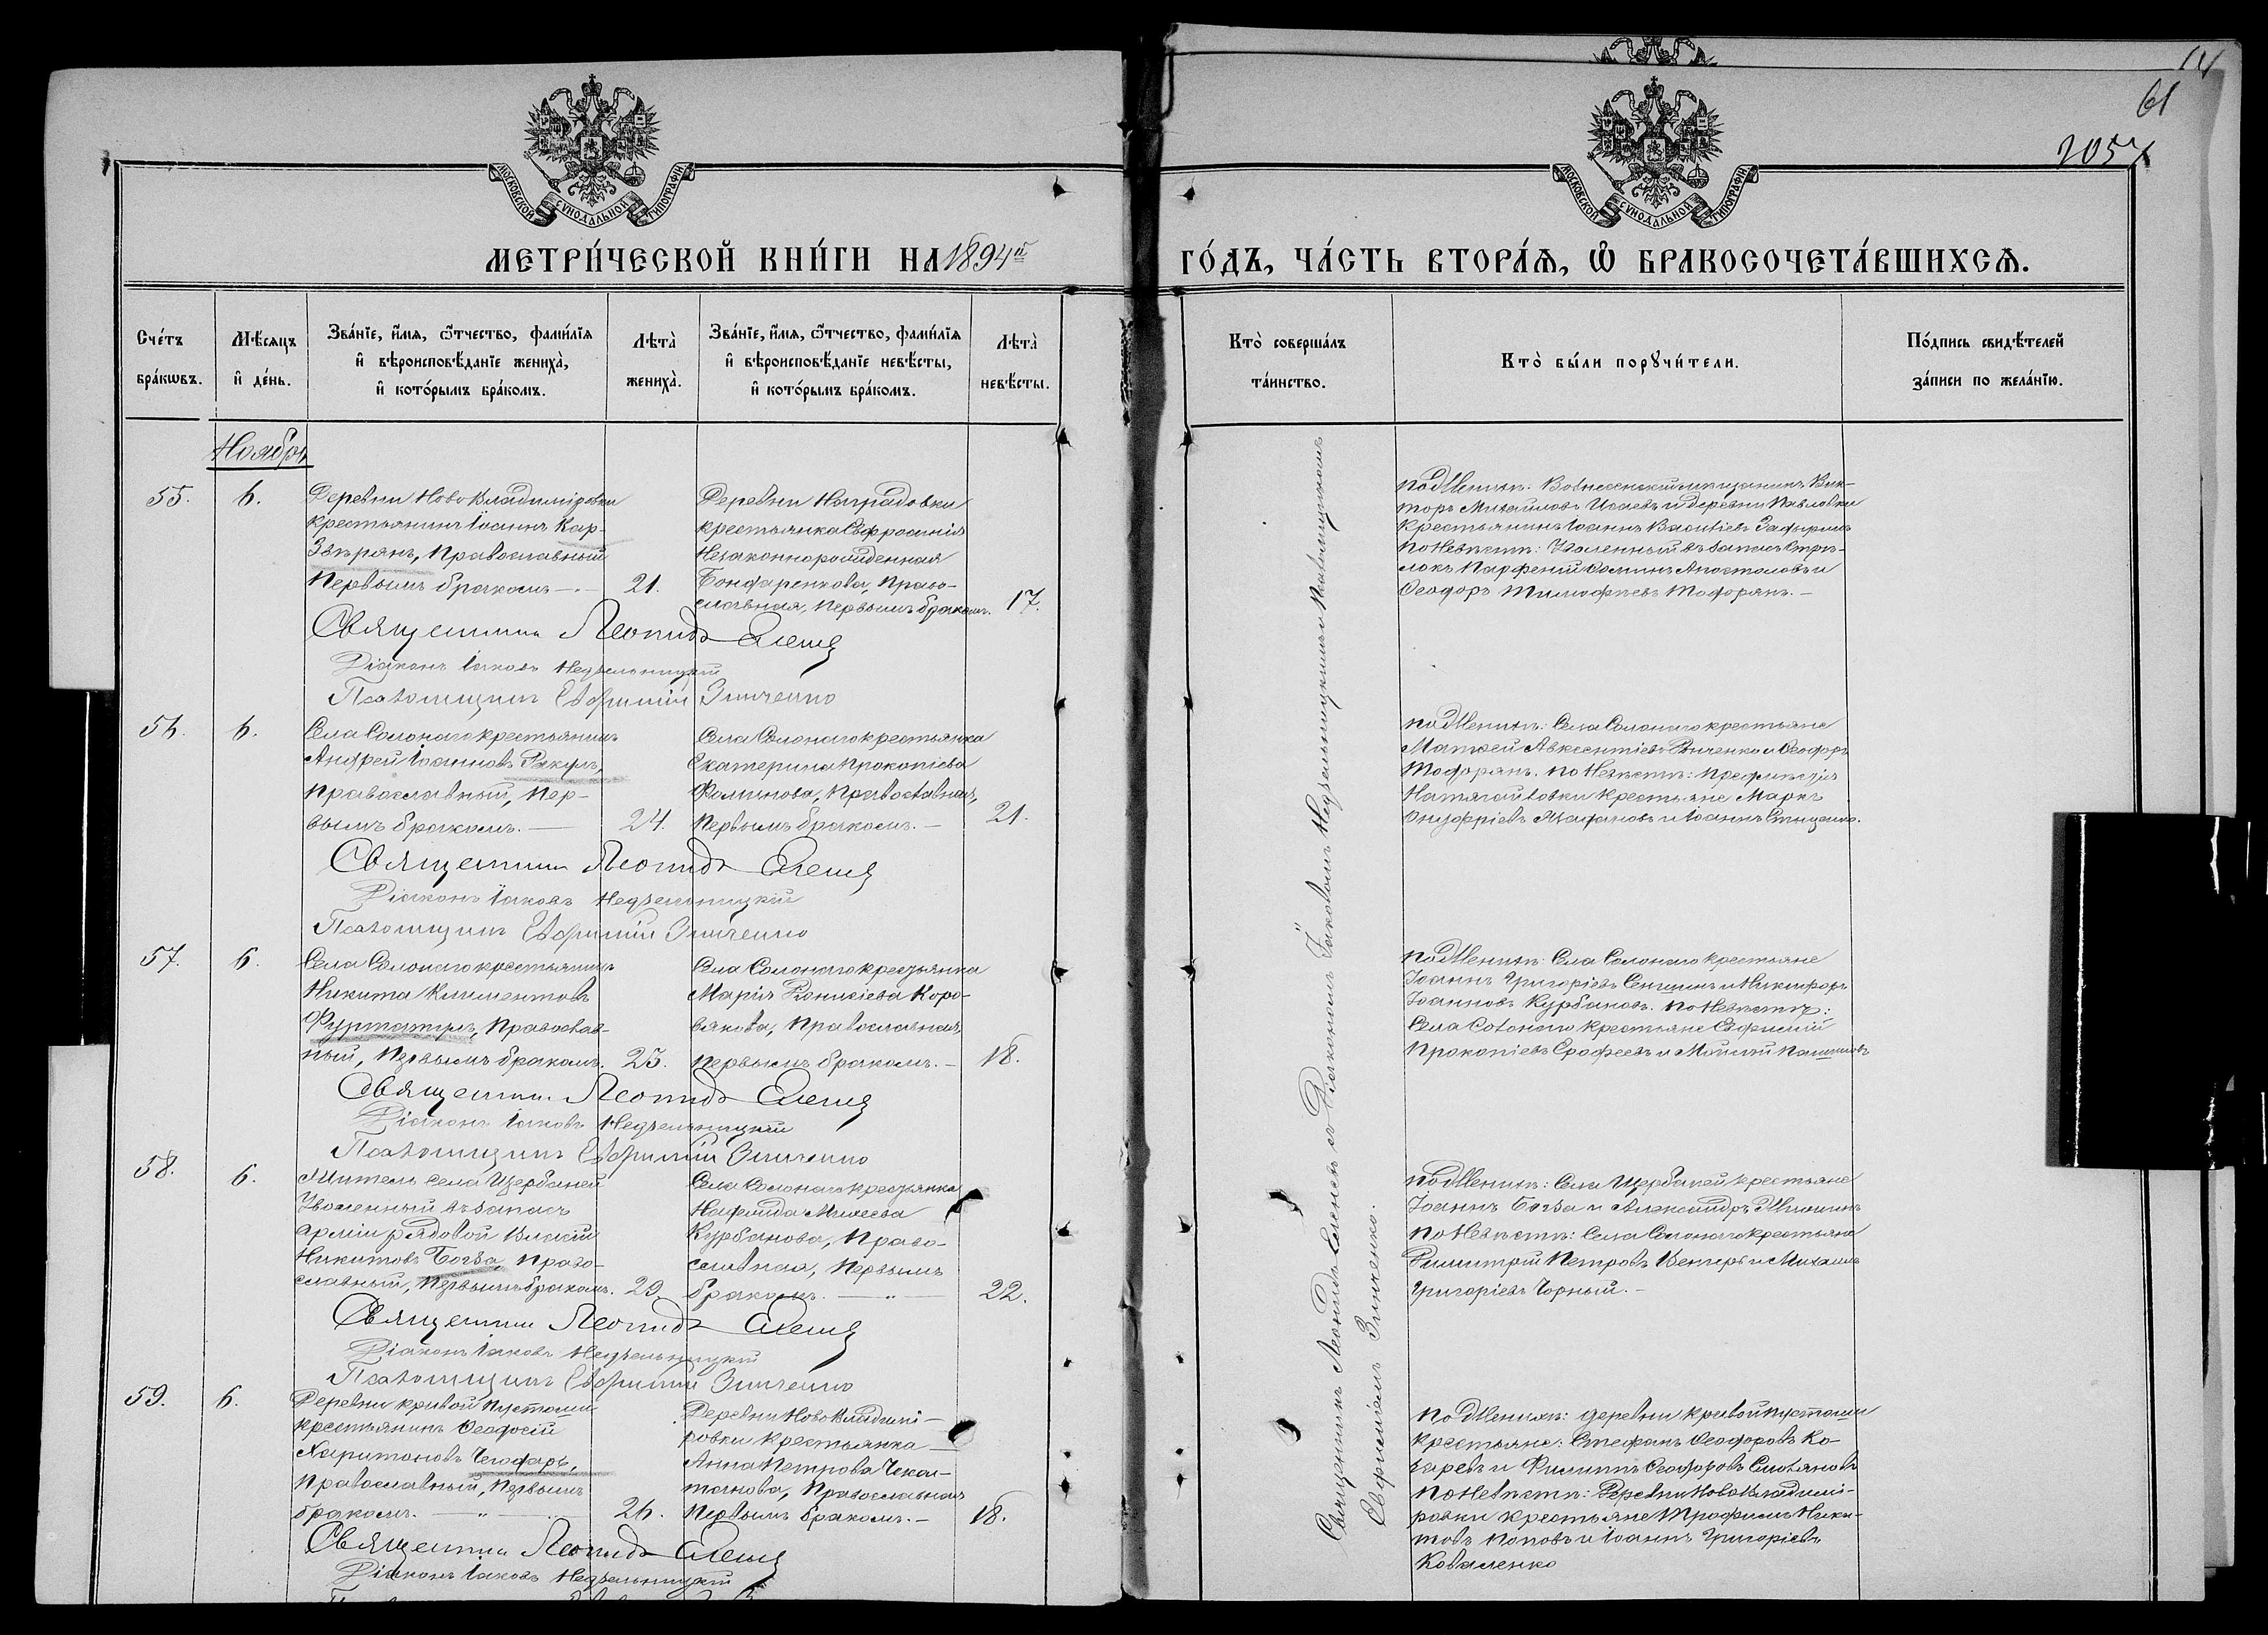 14
61
205
МОСКОВСКОЙ СѴНОДАЛЬНОЙ ТИПОГРАФІИ
МОСКОВСКОЙ СѴНОДАЛЬНОЙ ТИПОГРАФІИ
МЕТРИ́ЧЕСКОЙ КНИ́ГИ НА 1894й ГО́ДЪ, ЧА́СТЬ ВТОРА́Я, Ѡ҆ БРАКОСОЧЕТА́ВШИХСЯ.
Сче́тъ бра́кѡвъ.
Мѣ́сяцъ и҆ де́нь.
Зва́нїе, и҆́мя, ѻ҆́тчество, фами́лїя
и҆ вѣроисповѣ́данїе жениха̀,
и҆ кото́рымъ бра́комъ.
Лѣта̀ жениха̀.
Зва́нїе, и҆́мя, ѻ҆́тчество, фами́лїя
и҆ вѣроисповѣ́данїе невѣ́сты,
и҆ кото́рымъ бра́комъ.
Лѣта̀ невѣ́сты.
Кто̀ соверша́лъ
та́инство.
Кто̀ бы́ли порꙋчи́тели.
По́дпись свидѣ́телей
за́писи по жела́нїю.
Ноябрь
55.
6.
Деревни НовоВладиміровки
крестьянинъ Іоаннъ Кар-
Звѣрянъ, Православный
Первымъ бракомъ
21.
Деревни Наградовки
крестьянка Евфросинія
Незаконнорожденная
Бондаренкова, Право-
славная, Первымъ бракомъ.
17.
По Женихѣ: Вознесенскій мѣщанинъ Вик-
торъ Михайловъ Исаевъ и деревни Павловки
Крестьянинъ Іоаннъ
По Невѣстѣ: Уволенный въ запасъ Стрѣ-
локъ Парфеній Апостоловъ и
Ѳеодоръ Тимофеевъ Тодорянъ.
Священникъ Леонидъ
Діаконъ Іаковъ Недзельницкій
Псаломщикъ Евфимій Зинченко
56.
6.
Села Солонаго крестьянинъ
Андрей Іоанновъ Рякулъ,
Православный, Пер-
вымъ бракомъ.
24.
Села Солонаго крестьянка
Екатерина Прокопіева
Фоминова, Православная,
Первымъ бракомъ.
21.
По Женихѣ: Села Солонаго крестьяне
Матѳей Авксентіевъ и Ѳеодоръ
Тодорянъ. По Невѣстѣ:
крестьяне Маркъ
Онуфріевъ и Іоаннъ
Священникъ Леонидъ
Діаконъ Іаковъ Недзельницкій
Псаломщикъ Евфимій Зинченко
57.
6.
Села Солонаго крестьянинъ
Никита Климентовъ
Фуртатулъ, Православ-
ный, Первымъ бракомъ.
23.
Села Солонаго крестьянка
Марія Діонисіева Коро-
вякова, Православная,
Первымъ бракомъ.
18.
По Женихѣ: Села Солонаго крестьяне
Іоаннъ Григоріевъ и Никифоръ
Іоанновъ Курбановъ. По Невѣстѣ:
Села Солонаго Крестьяне Евфимій
Прокопіевъ Ерофеевъ и Моисей
Священникъ Леонидъ
Діаконъ Іаковъ Недзельницкій
Псаломщикъ Евфимій Зинченко
58.
6.
Житель села Щербаней
Уволенный въ запасъ
арміи рядовой
Никитовъ Богза, Право-
славный, Первымъ бракомъ.
29.
Села Солонаго крестьянка
Михеева
Курбанова, Право-
славная, Первымъ
бракомъ.
22.
По Женихѣ: Села Щербаней крестьяне
Іоаннъ Богза и Александръ
По Невѣстѣ: Села Солонаго крестьяне
Димитрій Петровъ Венгеръ и Михаилъ
Григоріевъ Чорный.
Священникъ Леонидъ
Діаконъ Іаковъ Недзельницкій
Псаломщикъ Евфимій Зинченко
59.
6.
Деревни Кривой Пустоши
крестьянинъ Ѳеодосій
Харитоновъ Чеофаръ,
Православный, Первымъ
бракомъ.
26.
Деревни НовоВладимі-
ровки крестьянка
Анна Петрова
Православная
Первымъ бракомъ.
18.
По Женихѣ: деревни Кривой Пустоши
крестьяне: Стефанъ Ѳеодоровъ Ко-
царевъ и Филиппъ Ѳеодоровъ
По Невѣстѣ: Деревни НовоВладимі-
ровки крестьяне Трофимъ Ники-
товъ Поповъ и Іоаннъ Григоріевъ
Коваленко
Священникъ Леонидъ
Діаконъ Іаковъ Недзельницкій
Священникъ Леонидъ съ Діакономъ Іаковомъ Недзельницкимъ и Псаломщикомъ
Евфиміемъ Зинченко.